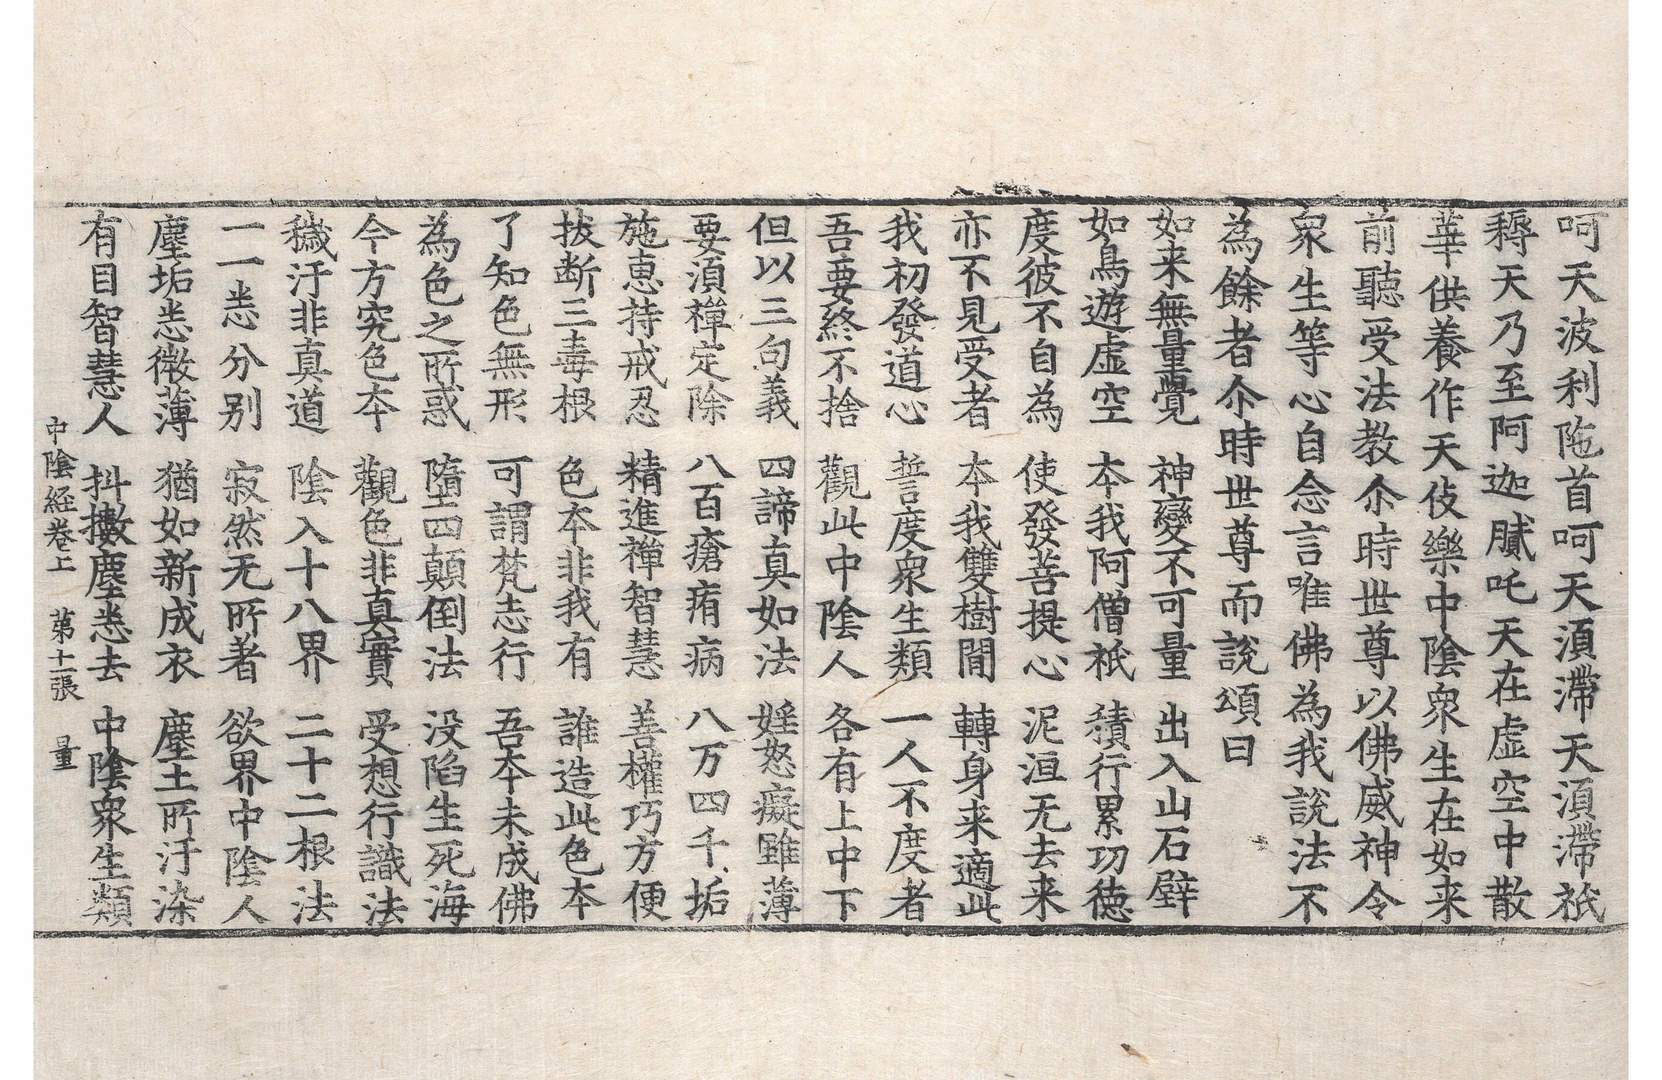 呵天波利陁首呵天湏滯天湏滯祇
耨天乃至阿迦膩吒天在虛空中散
華供養作天伎樂中陰衆生在如来
前聽受法教尒時世尊以佛威神令
衆生等心自念言唯佛為我說法不
為餘者尒時世尊而說頌曰
如来無量覺 神變不可量 出入山石壁
如鳥遊虛空 本我阿僧祇 積行累功德
度彼不自為 使發菩提心 泥洹无去来
亦不見受者 本我雙樹間 轉身来適此
我初發道心 誓度衆生類 一人不度者
吾要終不捨 觀此中陰人 各有上中下
但以三句義 四諦真如法 婬怒癡雖薄
要須禪定除 八百瘡痏病 八万四千垢
施恵持戒忍 精進禪智慧 善權巧方便
拔断三毒根 色本非我有 誰造此色本
了知色無形 可謂梵志行 吾本未成佛
為色之所惑 墮四顛倒法 没陷生死海
今方究色本 觀色非真實 受想行識法
穢汙非真道 陰入十八界 二十二根法
一一悉分别 寂然无所著 欲界中陰人
塵垢悉微薄 猶如新成衣 塵土所汙染
有目智慧人 抖擻塵悉去 中陰衆生類
中陰経卷上 第十一張 量